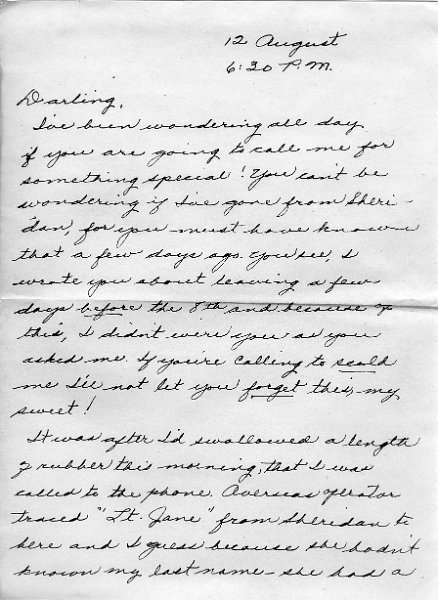 12 August
6:30 P.M.
Darling,
I've been wondering all day
if you are going to call me for
something special! You can't be
wondering if I've gone from Sheri-
dan, for you must have known
that a few days ago. You see, I
wrote you about leaving a few
days before the 8th and because of
this, I didn't were you as you
asked me. If you're calling to scold
me I'll not let you forget this, my
sweet!
It was after I'd swallowed a length
of rubber this morning, that I was
called to the phone. Overseas operator
traced "Lt. Jane" from Sheridan to
here and I guess because she hadn't
known my last name - she had a